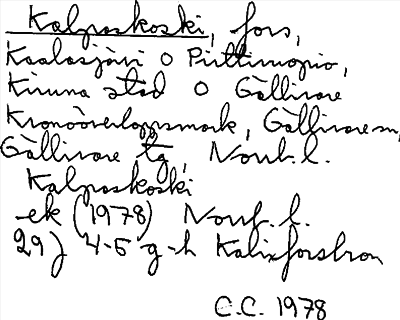 Kalpaskoski, fors,
Kaalasjärvi o Pirttinopio,
Kiruna stad o Gällivare
Kronoöverloppsmark, Gällivare sn,
Gällivare tg, Norrb. l.
Kalpaskoski
-ek (1978) Norrb. l.
29J 4-5 g-h Kalixforsbron
C.C. 1978